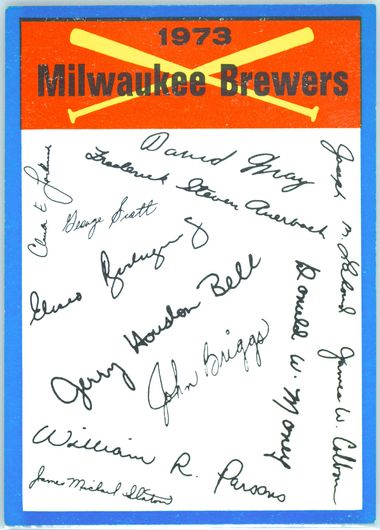 1973
Milwaukee Brewers
David May
Frederick Steven Auerbach
George Scott
Eliseo Rodriguez
Jerry Houston Bell
John Briggs
Donald W. Money
William R. Parsons
James Michael Slaton
Joseph M. Lahoud
James W. Colborn